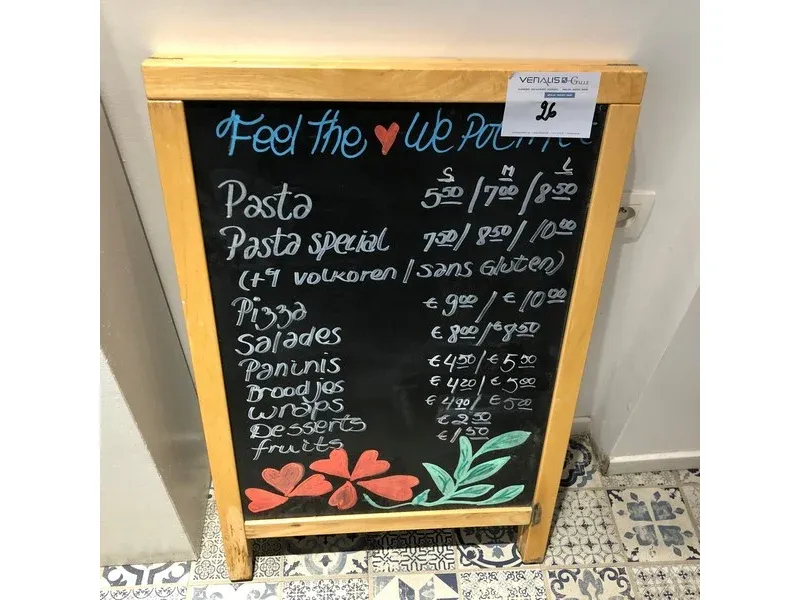 VENALIS GALLE
26
Feel the We
S M L
Pasta 5 50 / 7 00 / 8 50
Pasta special 7 50 / 8 50 / 10 00
(+ volkoren / sans Gluten)
Pizza € 9 00 / € 10 00
Salades € 8 00 / € 8 50
Paninis € 4 50 / € 5 50
Broodjes € 4 20 / € 5 00
wraps € 4 90 / € 5 20
Desserts € 2 50
fruits € 1 50